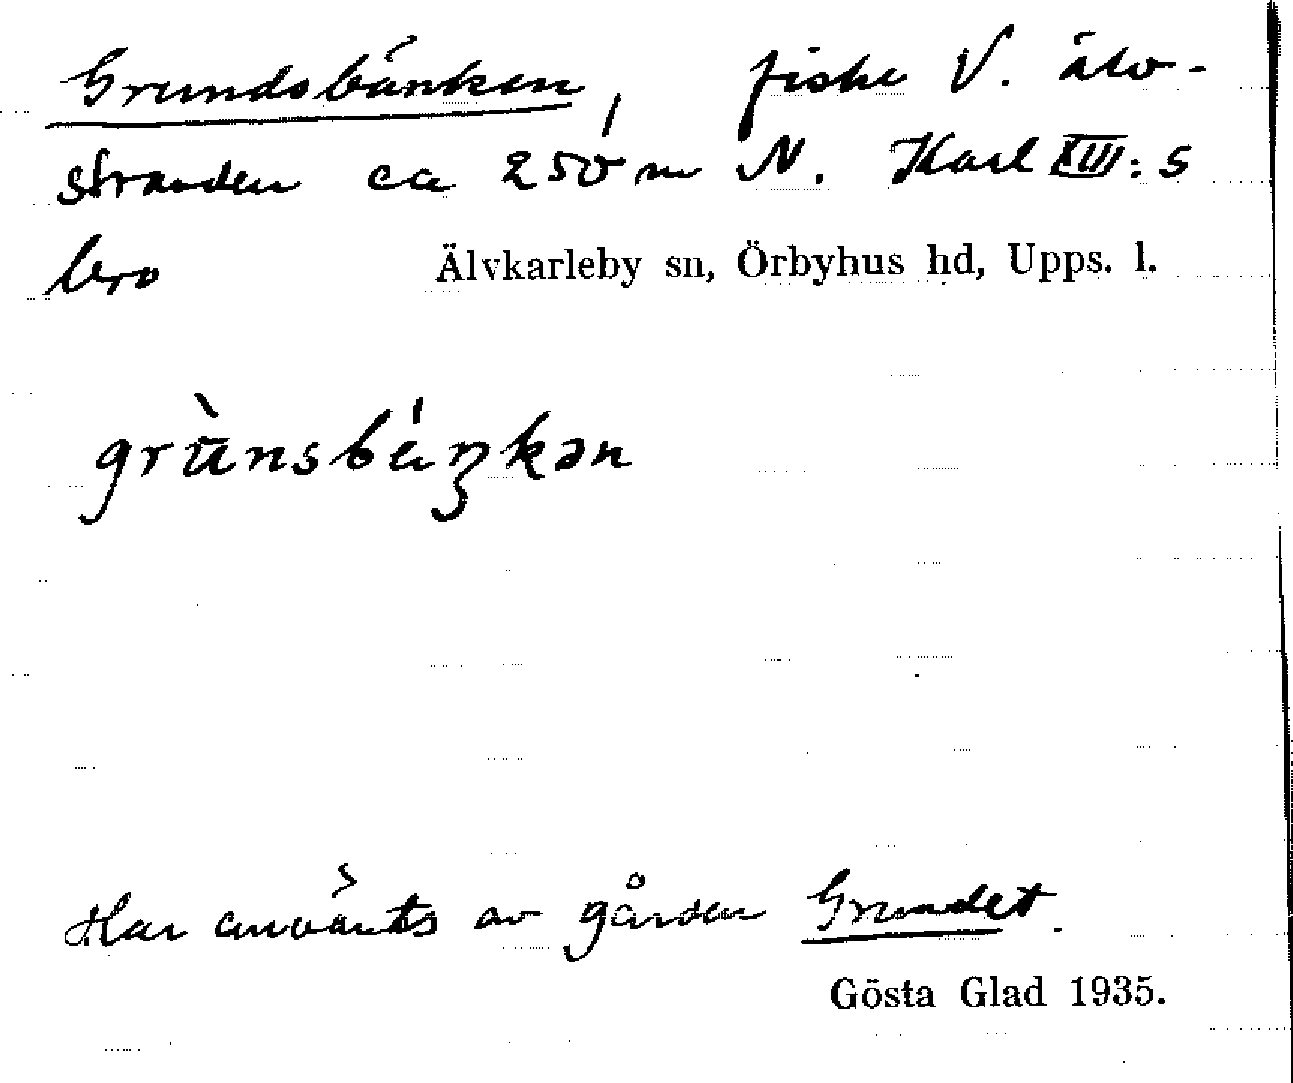 Grundsbänken, fiske V. älv-
stranden ca 250 m N. Karl XIII:s
bro
Älvkarleby sn, Örbyhus hd, Upps. l.
grùnsbáŋkən
Har använts av gården Grundet.
Gösta Glad 1935.